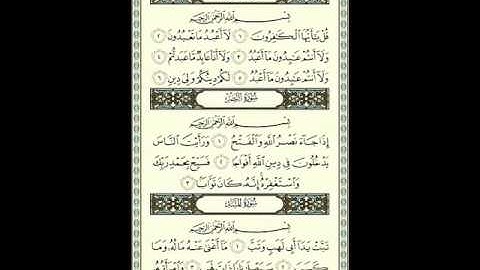 بِسْمِ اللَّهِ الرَّحْمَٰنِ الرَّحِيمِ
قُلْ يَا أَيُّهَا الْكَافِرُونَ ١ لَا أَعْبُدُ مَا تَعْبُدُونَ ٢
وَلَا أَنتُمْ عَابِدُونَ مَا أَعْبُدُ ٣ وَلَا أَنَا عَابِدٌ مَّا عَبَدتُّمْ ٤
وَلَا أَنتُمْ عَابِدُونَ مَا أَعْبُدُ ٥ لَكُمْ دِينُكُمْ وَلِيَ دِينِ ٦
سُورَةُ النَّصْرِ
بِسْمِ اللَّهِ الرَّحْمَٰنِ الرَّحِيمِ
إِذَا جَاءَ نَصْرُ اللَّهِ وَالْفَتْحُ ١ وَرَأَيْتَ النَّاسَ
يَدْخُلُونَ فِي دِينِ اللَّهِ أَفْوَاجًا ٢ فَسَبِّحْ بِحَمْدِ رَبِّكَ
وَاسْتَغْفِرْهُ إِنَّهُ كَانَ تَوَّابًا ٣
سُورَةُ المَسَدِ
بِسْمِ اللَّهِ الرَّحْمَٰنِ الرَّحِيمِ
تَبَّتْ يَدَا أَبِي لَهَبٍ وَتَبَّ ١ مَا أَغْنَىٰ عَنْهُ مَالُهُ وَمَا
كَسَبَ ٢ سَيَصْلَىٰ نَارًا ذَاتَ لَهَبٍ ٣ وَامْرَأَتُهُ